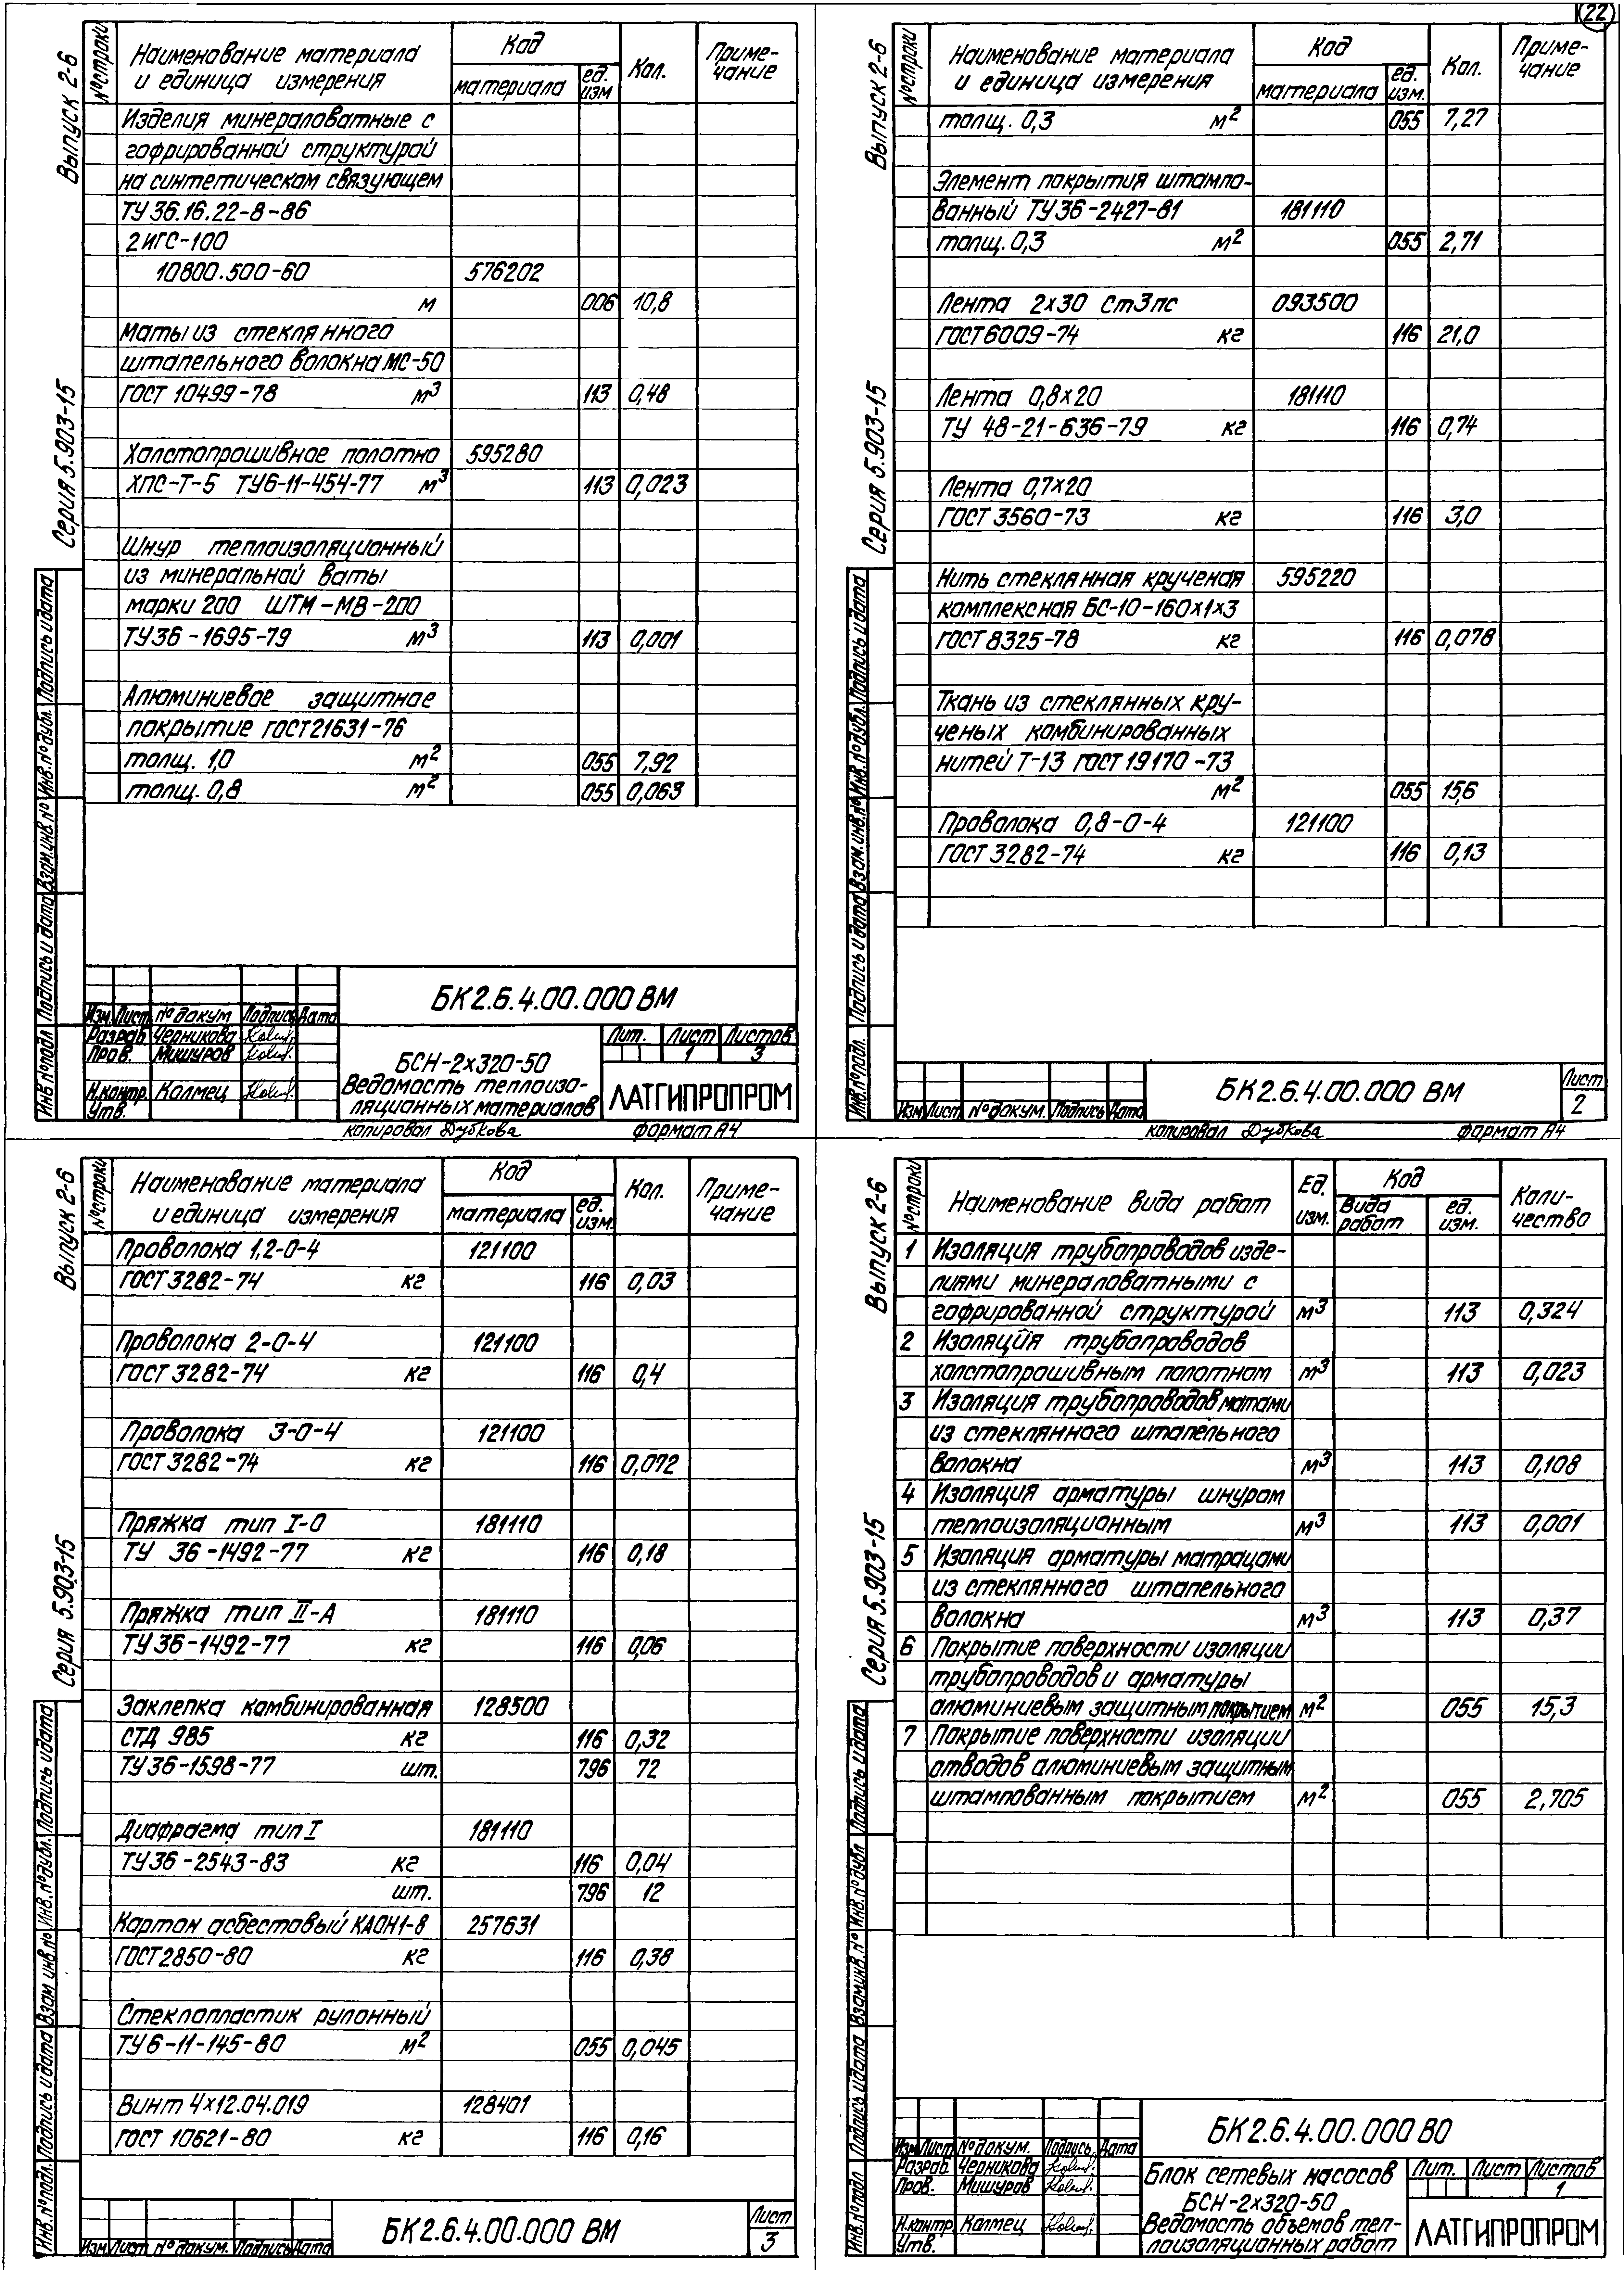 22
Выпуск 2-6
Серия 5.903-15
№ строки
Наименование материала и единица измерения
Код
материала
ед. изм
Кол.
Приме-чание
Изделия минераловатные с
гофрированной структурой
на синтетическом связующем
ТУ 36.16.22-8-86
2ИГС-100
10800.500-60 576202
м 006 10,8
Маты из стеклянного
штапельного волокна МС-50
ГОСТ 10499-78 м3 113 0,48
Холстопрошивное полотно 595280
ХПС-Т-5 ТУ6-11-454-77 м3 113 0,023
Шнур теплоизоляционный
из минеральной ваты
марки 200 ШТМ-МВ-200
ТУ36-1695-79 м3 113 0,001
Алюминиевое защитное
покрытие ГОСТ21631-76
толщ. 1,0 м2 055 7,92
толщ. 0,8 м2 055 0,063
Инв № подл Подпись и дата Взам.инв.№ Инв.№ дубл. Подпись и дата
БК2.6.4.00.000 ВМ
Изм. Лист № докум Подпись Дата
Разраб. Черникова
Пров. Мишуров
Н.контр. Калмец
Утв.
БСН-2х320-50
Ведомость теплоизо-
ляционных материалов
Лит. Лист Листов
1 3
ЛАТГИПРОПРОМ
копировал Дубкова формат А4
Выпуск 2-6
Серия 5.903-15
№ строки
Наименование материала и единица измерения
Код
материала
ед. изм.
Кол.
Приме-чание
толщ. 0,3 м2 055 7,27
Элемент покрытия штампо-
ванный ТУ36-2427-81 181110
толщ. 0,3 м2 055 2,71
Лента 2х30 Ст3пс 093500
ГОСТ6009-74 кг 116 21,0
Лента 0,8х20 181110
ТУ 48-21-636-79 кг 116 0,74
Лента 0,7х20
ГОСТ 3560-73 кг 116 3,0
Нить стеклянная крученая 595220
комплексная БС-10-160х1х3
ГОСТ 8325-78 кг 116 0,078
Ткань из стеклянных кру-
ченых комбинированных
нитей Т-13 ГОСТ 19170-73
м2 055 15,6
Проволока 0,8-0-4 121100
ГОСТ 3282-74 кг 116 0,13
Инв.№ подл. Подпись и дата Взам.инв.№ Инв.№ дубл. Подпись и дата
Изм Лист № докум. Подпись Дата
БК2.6.4.00.000 ВМ
Лист
2
копировал Дубкова формат А4
Выпуск 2-6
Серия 5.903-15
№ строки
Наименование материала и единица измерения
Код
материала
ед. изм.
Кол.
Приме-чание
Проволока 1,2-0-4 121100
ГОСТ 3282-74 кг 116 0,03
Проволока 2-0-4 121100
ГОСТ 3282-74 кг 116 0,4
Проволока 3-0-4 121100
ГОСТ 3282-74 кг 116 0,072
Пряжка тип I-0 181110
ТУ 36-1492-77 кг 116 0,18
Пряжка тип II-А 181110
ТУ 36-1492-77 кг 116 0,06
Заклепка комбинированная 128500
СТД 985 кг 116 0,32
ТУ 36-1598-77 шт. 796 72
Диафрагма тип I 181110
ТУ 36-2543-83 кг 116 0,04
шт. 796 12
Картон асбестовый КАОН1-8 257631
ГОСТ2850-80 кг 116 0,38
Стеклопластик рулонный
ТУ6-11-145-80 м2 055 0,045
Винт 4х12.04.019 128401
ГОСТ 10621-80 кг 116 0,16
Инв.№ подл. Подпись и дата Взам инв.№ Инв.№ дубл. Подпись и дата
Изм Лист № докум. Подпись Дата
БК2.6.4.00.000 ВМ
Лист
3
Выпуск 2-6
Серия 5.903-15
№ строки
Наименование вида работ
Ед. изм.
Код
вида работ
ед. изм.
Коли-чество
1 Изоляция трубопроводов изде-
лиями минераловатными с
гофрированной структурой м3 113 0,324
2 Изоляция трубопроводов
холстопрошивным полотном м3 113 0,023
3 Изоляция трубопроводов матами
из стеклянного штапельного
волокна м3 113 0,108
4 Изоляция арматуры шнуром
теплоизоляционным м3 113 0,001
5 Изоляция арматуры матрацами
из стеклянного штапельного
волокна м3 113 0,37
6 Покрытие поверхности изоляции
трубопроводов и арматуры
алюминиевым защитным покрытием м2 055 15,3
7 Покрытие поверхности изоляции
отводов алюминиевым защитным
штампованным покрытием м2 055 2,705
Инв.№ подл Подпись и дата Взам.инв.№ Инв.№ дубл Подпись и дата
БК2.6.4.00.000 ВО
Изм Лист № докум. Подпись Дата
Разраб. Черникова
Пров. Мишуров
Н.контр. Калмец
Утв.
Блок сетевых насосов
БСН-2х320-50
Ведомость объемов теп-
лоизоляционных работ
Лит. Лист Листов
1
ЛАТГИПРОПРОМ